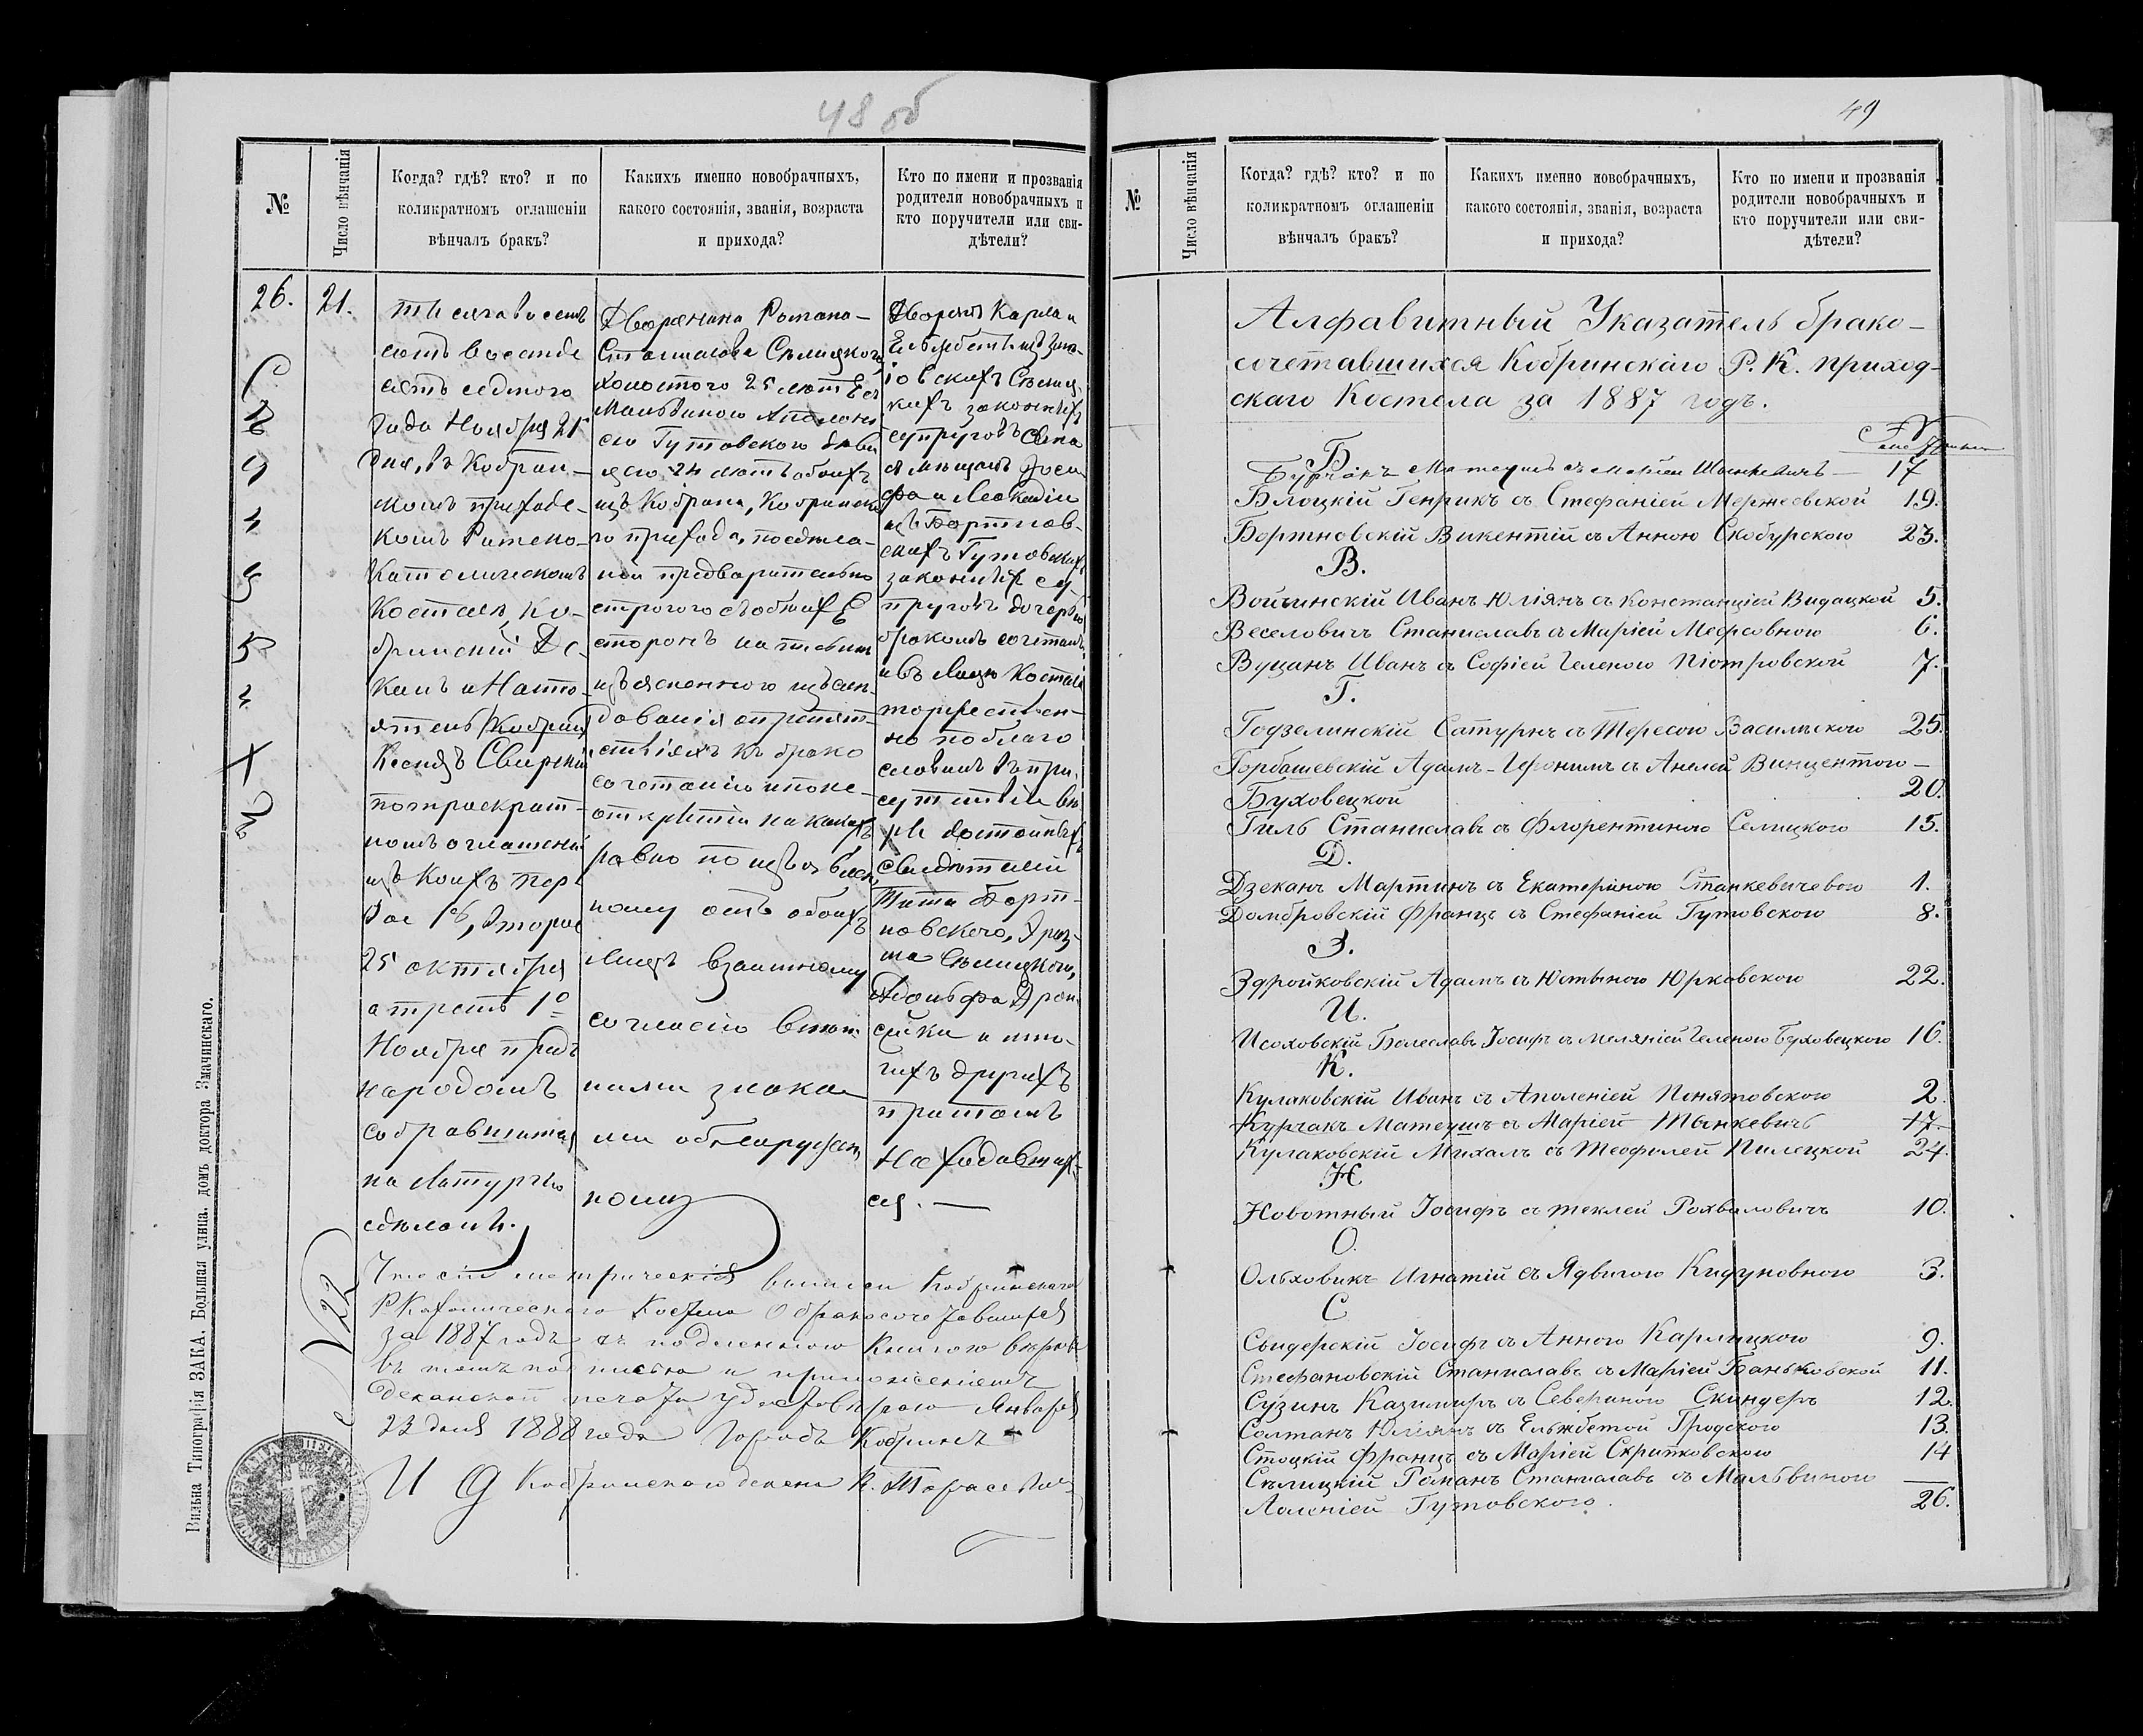 48 об
№
Число вѣнчанія
Когда? гдѣ? кто? и по
коликратномъ оглашеніи
вѣнчалъ бракъ?
Какихъ именно новобрачныхъ,
какого состоянія, званія, возраста
и прихода?
Кто по имени и прозванія
родители новобрачныхъ и
кто поручители или сви-
дѣтели?
26.
21.
тысяча восемь
сотъ восемде
сятъ седмого
года Ноября 21
дня, въ Кобрин-
скомъ приход-
скомъ Римско-
Католическомъ
Костелѣ, Ко-
бринскій Де-
канъ и Насто-
ятель Кобрин
Ксендзъ Свирскій
по троекрат-
номъ оглашеніи
изъ коихъ пер
вое 18, второе
25 октября
а третіе 1º
Ноября предъ
народомъ
собравшимся
на Литургію
сдѣланы.
Дворянина Романа-
Станислава Сѣлицкого
холостого 25 лѣтъ съ
Мальвиною Аполоні
ею Гутовского дѣви
цею 24 лѣтъ обоихъ
изъ Кобрина, Кобринска
го прихода, по сдѣла-
ніи предварительно
строгого съ обоихъ
сторонъ на письмѣ
изъясненного изслѣ-
дованія о препят-
ствіяхъ къ брако
сочетанію и по не-
открытіи никакихъ
равно по изъявлен
ному отъ обоихъ
лицъ взаимному
согласію внѣш
ними знака
ми обнаружен
ному
Дворянъ Карла и
Ельжбеты изъ
Сѣлиц
кихъ законныхъ
супруговъ сына
съ мѣщанъ Іоси
фа и Леокадіи
изъ Бортнов-
скихъ Гутовскихъ
законныхъ су
пруговъ дочерью
бракомъ сочеталъ
и въ лицѣ Костела
торжествен-
но поблаго
словилъ въ при-
сутствіи вѣ
ры достойныхъ
свидѣтелей
Тита Борт-
новского,
Сѣлицкого,
Адольфа
и мно-
гихъ другихъ
притомъ
находивших
ся. —
Что сіи метрическія выписи Кобринскаго
Р Католическаго Костела о бракосочетавшихся
за 1887 годъ съ подлинною книгою вѣрны
въ томъ подписью и приложеніемъ
деканской печати удостовѣряю Января
23 дня 1888 года Городъ Кобринъ
И Д Кобринскаго декана К. Тарасевичъ
Вильна Типографія ЗАКА. Большая улица. домъ доктора Змачинскаго.
49
№
Число вѣнчанія
Когда? гдѣ? кто? и по
коликратномъ оглашеніи
вѣнчалъ бракъ?
Какихъ именно новобрачныхъ,
какого состоянія, званія, возраста
и прихода?
Кто по имени и прозванія
родители новобрачныхъ и
кто поручители или сви-
дѣтели?
Алфавитный Указатель брако-
сочетавшихся Кобринскаго Р. К. приход-
скаго Костела за 1887 годъ.
Б
Бурчакъ Матеушъ съ Маріей Шанкевичъ — 17
Блоцкій Генрикъ съ Стефаніей Мержеевской 19.
Бортновскій Викентій съ Анною Скобурскою 23.
В.
Войчинскій Иванъ-Юліянъ съ Констанціей Видацкой 5.
Веселовичъ Станиславъ съ Маріей Месровною 6.
Вуцанъ Иванъ съ Софіей Геленою Піотровской 7.
Г.
Годзелинскій Сатурнъ съ Тересою Васильского 25.
Горбашевскій Адамъ-Іеронимъ съ Анелей Винцентою —
Буховецкой 20.
Гиль Станиславъ съ Флорентиною Селицкого 15.
Д.
Дзеканъ Мартинъ съ Екатериною Станкевичевою 1.
Домбровскій Францъ съ Стефаніей Гутовского 8.
З.
Здройковскій Адамъ съ Юстыною Юрковскою 22.
И.
Исаховскій Болеславъ Іосифъ съ Меляніей Геленою Буховецкого 16.
К.
Кулаковскій Иванъ съ Аполеніей Понятовского 2.
Курчакъ Матеушъ съ Маріей Танкевичъ 17.
Кулаковскій Михалъ съ Теофилей Пилецкой 24.
Н
Новотный Іосифъ съ Теклей Рохваловичъ 10.
О.
Ольховикъ Игнатій съ Ядвигою Кидуновною 3.
С
Свидерскій Іосифъ съ Анною Карлицкого 9.
Стефановскій Станиславъ съ Маріей Баньковской 11.
Сузинъ Казимиръ съ Севериною Скиндеръ 12.
Солтанъ Юліянъ съ Ельжбетой Гродского 13.
Стоцкій Францъ съ Маріей Скрипковского 14
Сѣлицкій Романъ Станиславъ съ Мальвиною
Аполеніей Гутовского. 26.